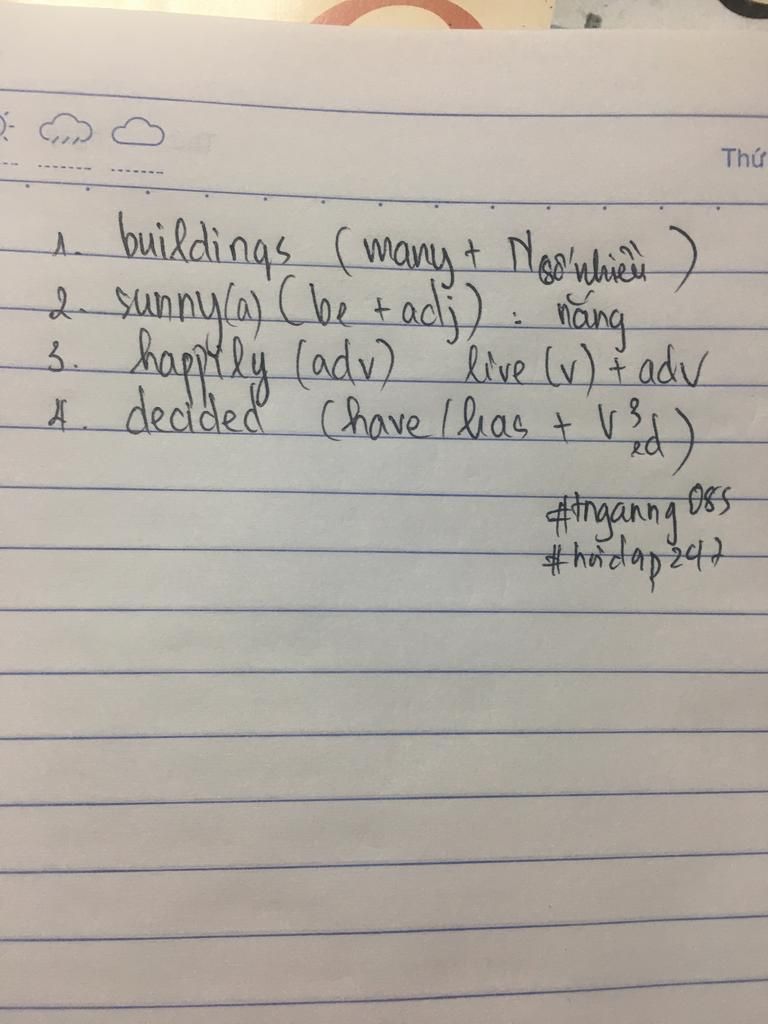 Thứ
1. buildings (many + N số nhiều)
2. sunny (a) (be + adj) : nắng
3. happily (adv) live (v) + adv
4. decided (have / has + V3 ed)
#tnganng085
#hoidap247